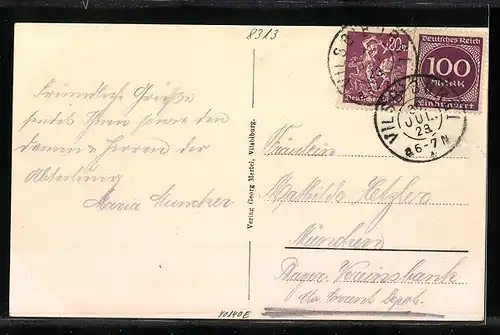 8313
Freundliche Grüße
sendet Ihnen sowie den
Damen u. Herren der
Abteilung
Maria
Verlag Georg Mertel, Vilsbiburg.
20
Deutsches Reich
Deutsches Reich
100
MARK
Einhundert
VILSBIBURG
JUL.
23
6-7 N
Fräulein
Mathilde
München
Bayer. Vereinsbank
40140E